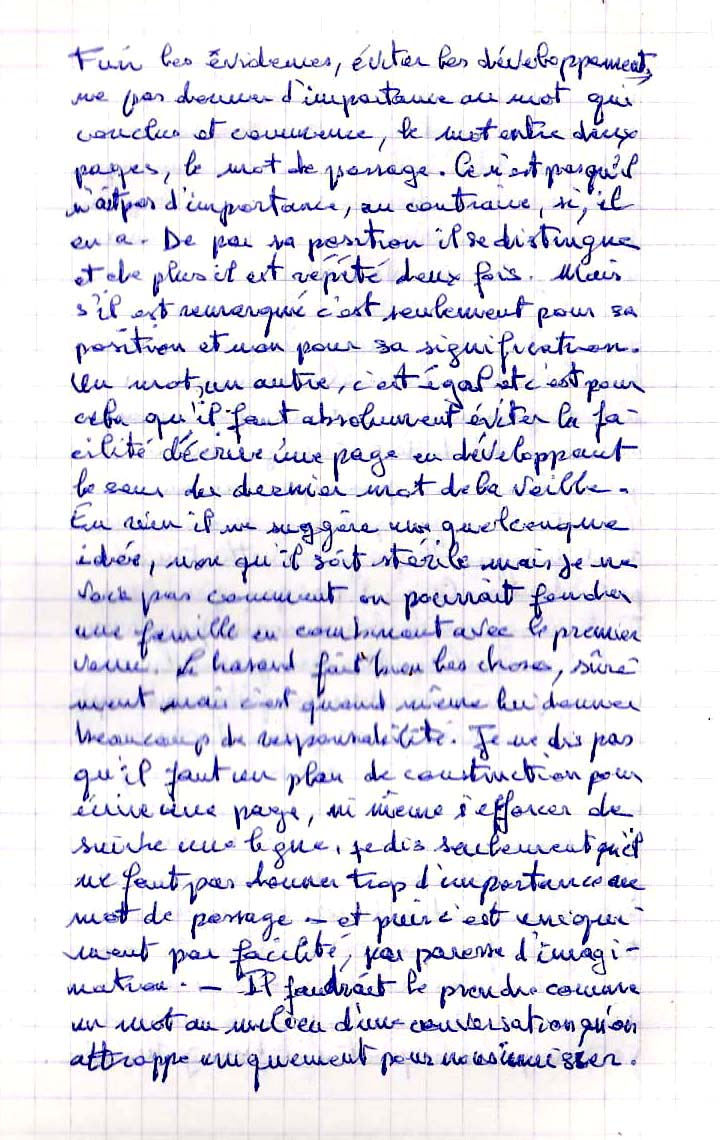 Fuir les évidences, éviter les développements,
ne pas donner d'importance au mot qui
conclue et commence, le mot entre deux
pages, le mot de passage. Ce n'est pas qu'il
n'ait pas d'importance, au contraire, si, il
en a. De par sa position il se distingue
et de plus il est répété deux fois. Mais
s'il est remarqué c'est seulement pour sa
position et non pour sa signification.
Un mot, un autre, c'est égal et c'est pour
cela qu'il faut absolument éviter la fa-
cilité d'écrire une page en développant
le sens du dernier mot de la veille.
En rien il ne suggère une quelconque
idée, non qu'il soit stérile mais je ne
vois pas comment on pourrait fonder
une famille en couchant avec le premier
venu. Le hasard fait bien les choses, sûre-
ment mais c'est quand même lui donner
beaucoup de responsabilité. Je ne dis pas
qu'il faut un plan de construction pour
écrire une page, ni même s'efforcer de
suivre une ligne, je dis seulement qu'il
ne faut pas donner trop d'importance au
mot de passage — et puis c'est unique-
ment par facilité, par paresse d'imagi-
nation. — Il faudrait le prendre comme
un mot au milieu d'une conversation qu'on
attrappe uniquement pour nous immiscer.